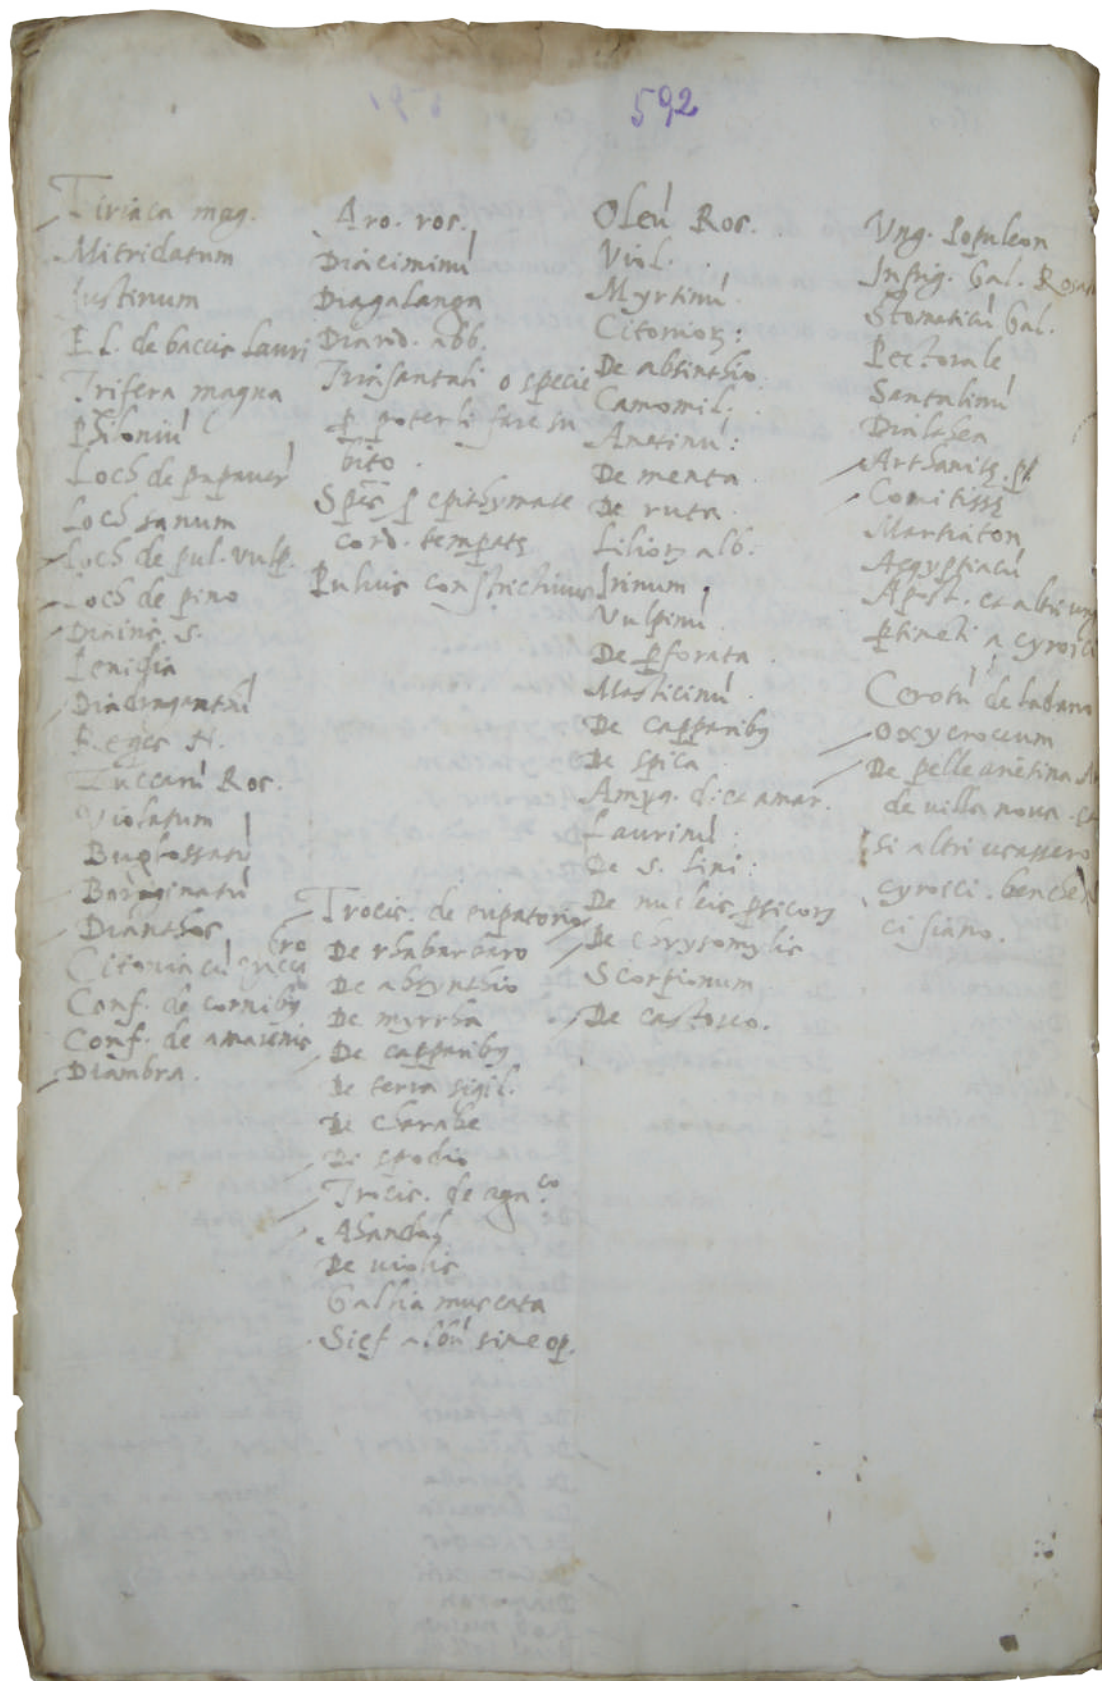 592
Tiriaca mag.
Mitridatum
Iustinum
El. de baccis Lauri
Trifera magna
Philoniu
Loch de papaver
Loch sanum
Loch de pul. vulp.
Loch de pino
Diairis. s.
Penidia
Diadragantu
Reges N.
Zuccaru Ros.
Violatum
Buglossatu
Boraginatu
Dianthos
Citoniacu
Conf. de cornibus
Conf. de amarenis
Diambra.
Aro. ros.
Diaciminu
Diagalanga
Diarod. abb.
Triasantali o specie
p poterli fare su
bito.
Spēs p epithymate
cord. tempate
Pulvis constrictivus
Trocis. de eupatorio
De rhabarbaro
De absynthio
De myrrha
De capparibus
De terra sigil.
De charabe
De spodio
Trocis. de agaco.
Alhandal
De violis
Gallia muscata
Sief albu sine op.
Oleu Ros.
Viol.
Myrtinu
Citonior:
De absinthio
Camomil.
Anetinu:
De menta
De ruta
Lilior alb.
Irinum
Vulpinu
De pforata
Masticinu
De capparibus
De spica
Amyg. d. et amar.
Laurinu
De s. lini:
De nucleis psicor
De chrysomylis
Scorpionum
De castoreo.
Ung. Populeon
Infrig. Gal. Rosa
Stomaticu Gal.
Pectorale
Santalinu
Dialthea
Arthanite
Comitisse
Martiaton
Aegyptiacu
Apost. et altri ung
ptineti a cyroici
Cerotu de ladano
Oxycroceum
De pelle arietina
de villa nova
si altri usassero
cyroici. benche
ci siano.